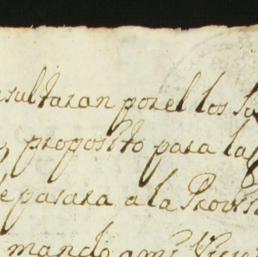 sultaran por el los
proposito para la
pasara a la
mando a mi